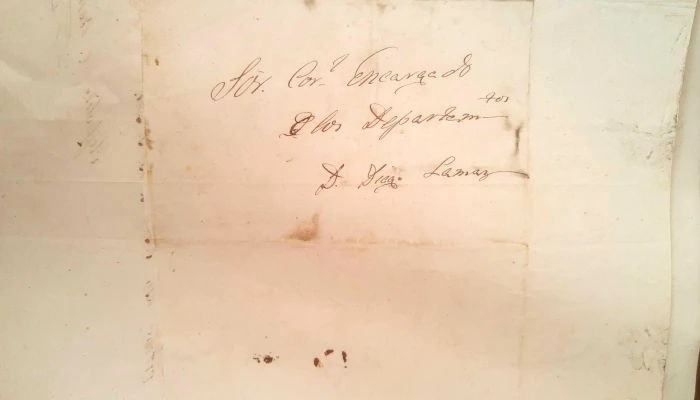 Sór. Cor.l Encargado
D los Departamtos
D. Diego Lamas